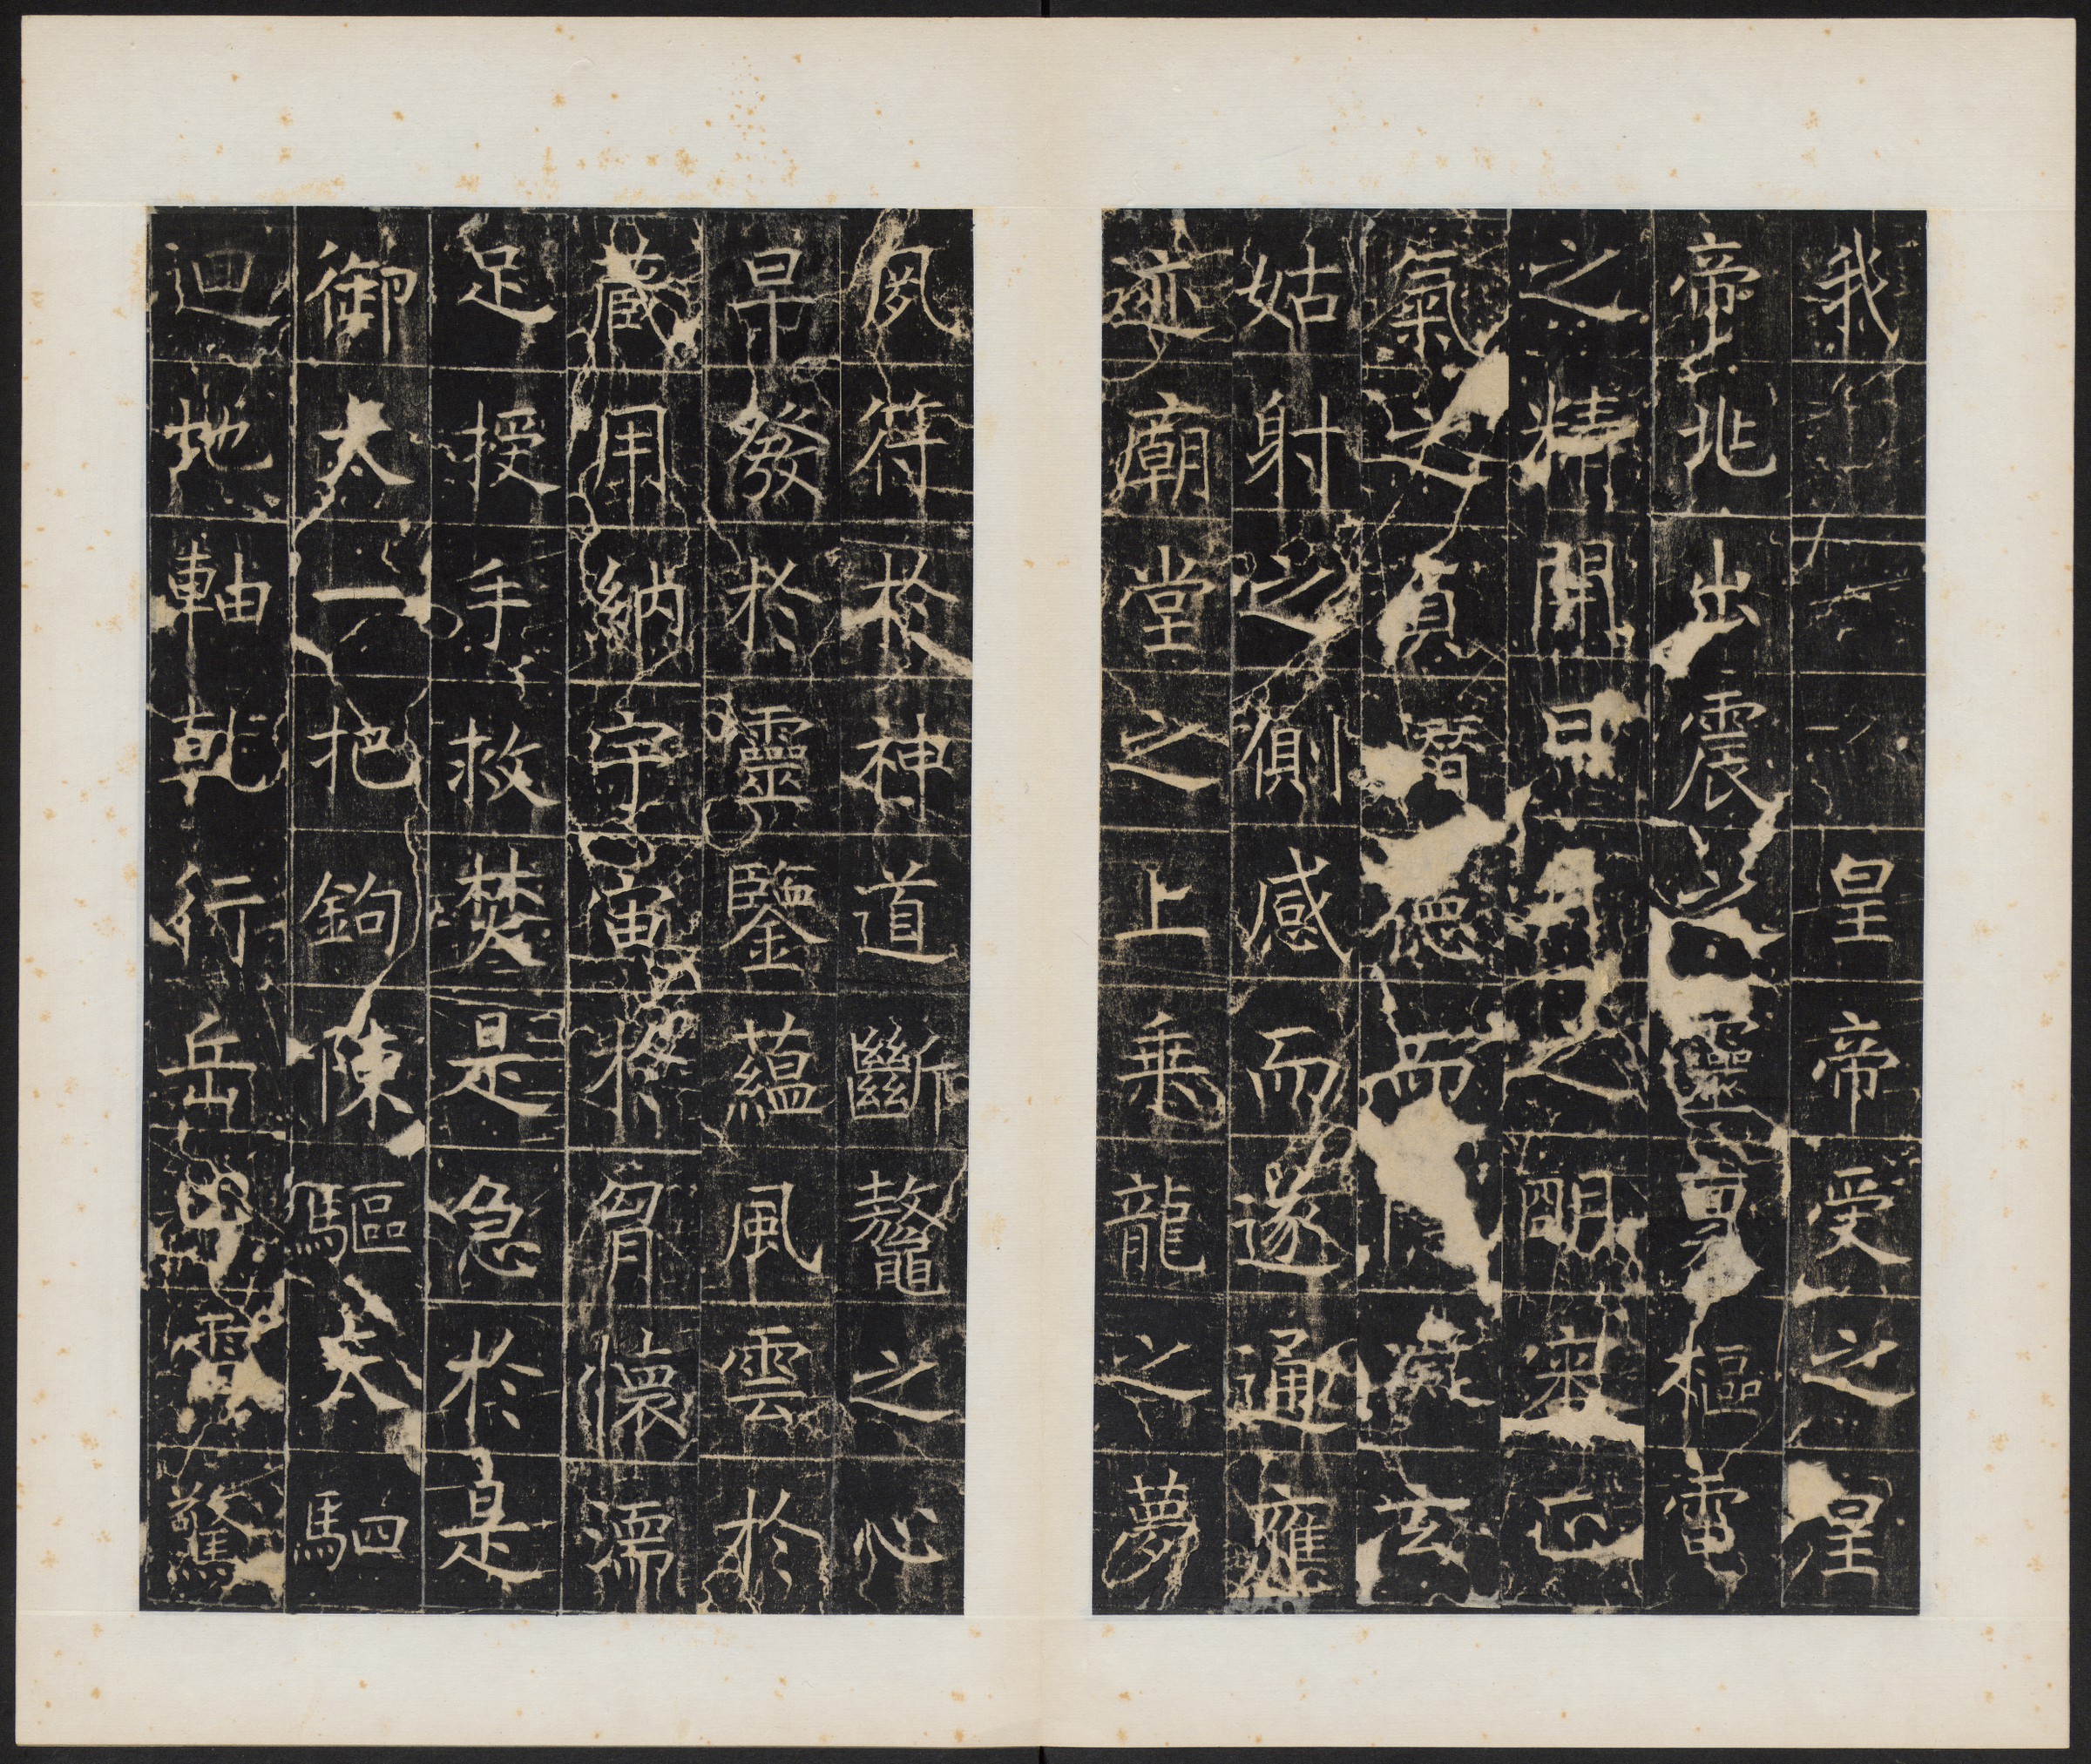 我皇帝受之皇
帝北出震以靈樞電
之精開日月之明氣正
氣之貞暦德而凝玄
姑射之側感而遂通應
迹廟堂之上乗龍之夢
夙符於神道斷鼇之心
早發於靈鑒蘊風雲於
蔵用納宇宙於胷懷濡
足授手救焚是急於是
御太一把鉤陳驅大駟
迴地軸乾行岳驚